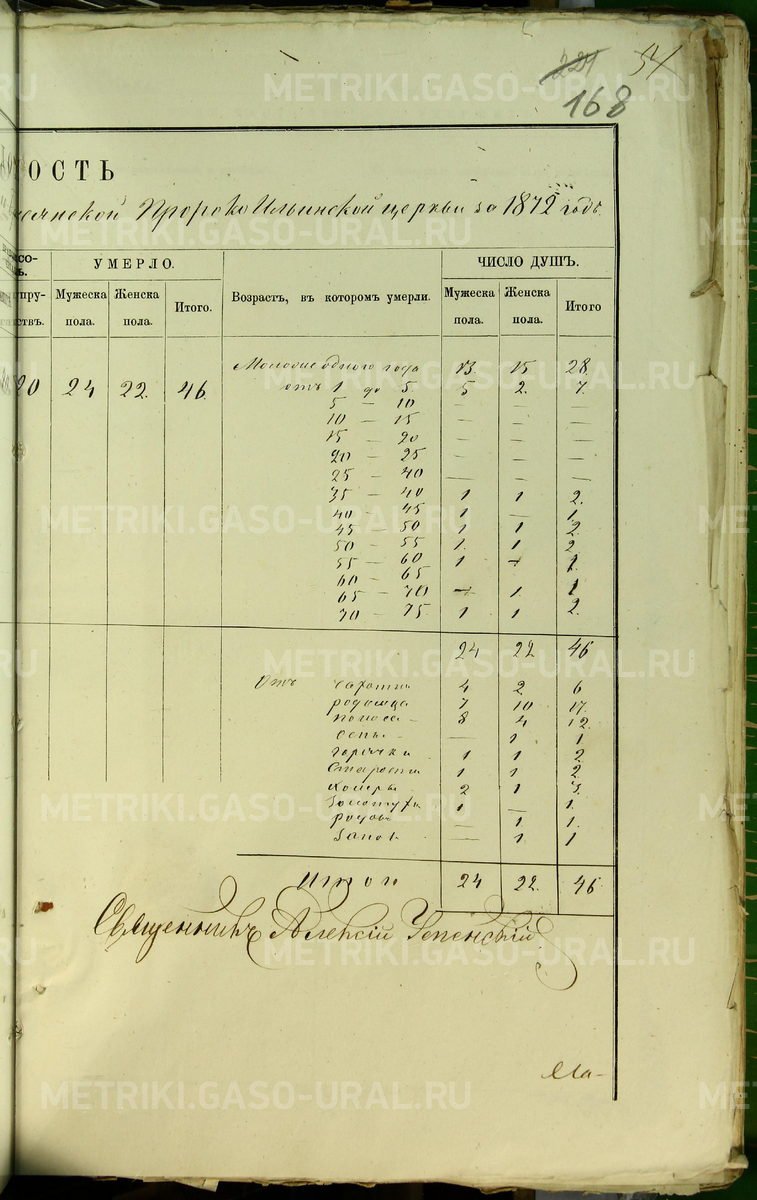 221 54
168
ОСТЬ
Пророко Ильинской церкви за 1872 годъ.
УМЕРЛО.
ЧИСЛО ДУШЪ.
Мужеска пола. Женска пола. Итого. Возрастъ, въ которомъ умерли. Мужеска пола. Женска пола. Итого
Моложе одного года 13. 15 28
20 24 22. 46. отъ 1 до 5. 5 2. 7.
5 — 10 — — —
10 — 15 — — —
15 — 20 — — —
20 — 25 — — —
25 — 40 — — —
35 — 40 1 1 2.
40 — 45 1 — 1.
45 — 50 1 1 2
50 — 55 1. 1 2
55 — 60 1 — 1.
60 — 65
65 — 70 — 1. 1
70 — 75 1 1 2.
24 22 46
Отъ чахотки 4 2 6
родимца 7 10 17.
поноса — 8 4 12.
оспы — 1 1.
горячки 1 1 2
Старости 1 1 2.
2 1 3.
Золотухи 1 — 1.
родовъ — 1. 1.
— 1 1
Итого 24 22. 46
Священникъ Алексій Успенскій
Ма-
METRIKI.GASO-URAL.RU